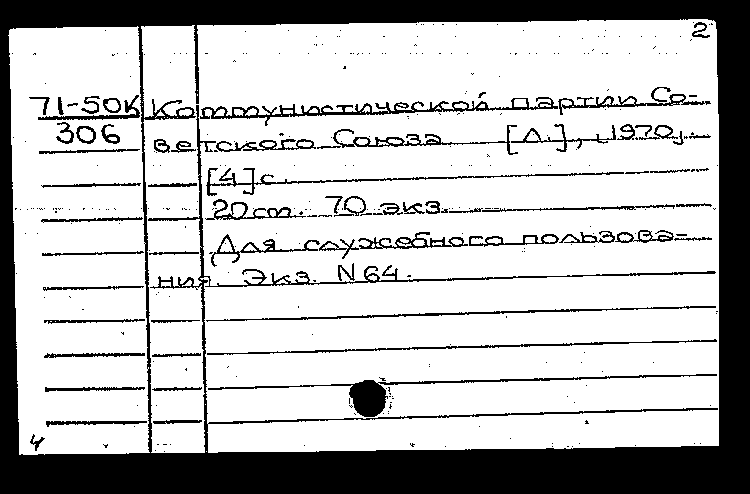 2
71-50К Коммунистической партии Со-
306 ветского Союза [Л.], [1970].
[4] с.
20 см. 70 экз.
Для служебного пользова-
ния. Экз. N 64.
4